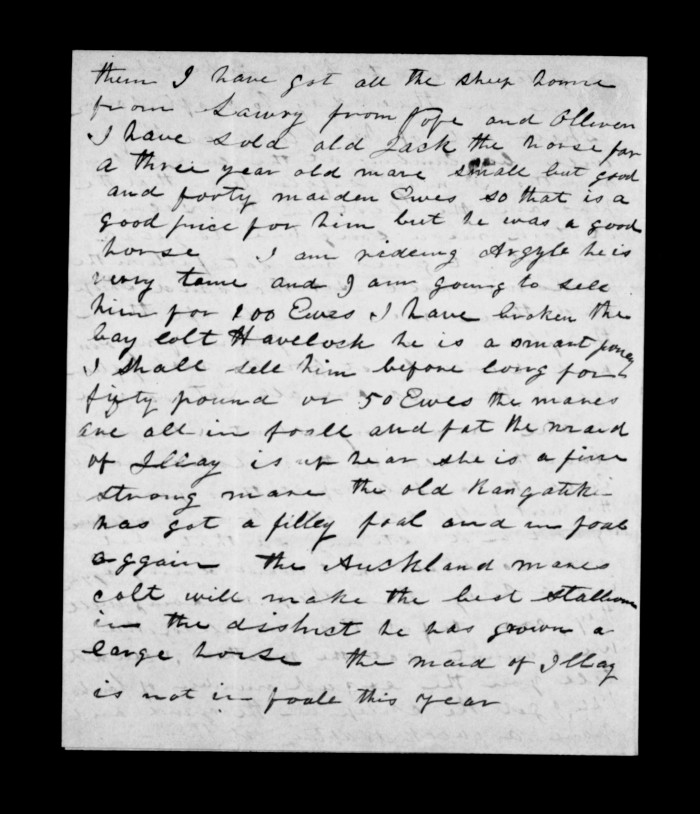 them I have got all the sheep home
from Lawry from Pope and Olliver
I have sold old Jack the horse for
a three year old mare small but good
and forty maiden Ewes so that is a
good price for him but he was a good
horse I am rideing Argyle he is
very tame and I am going to sell
him for 100 Ewes I have broken the
bay colt Havelock he is a smart poney
I shall sell him before long for
fifty pound or 50 Ewes the mares
are all in foall and fat the maid
of Illay is up hear she is a fine
strong mare the old Rangatiki
has got a filley foal and in foal
aggain the Auckland mares
colt will make the best stallion
in the district he has grown a
large horse the maid of Illay
is not in foale this year